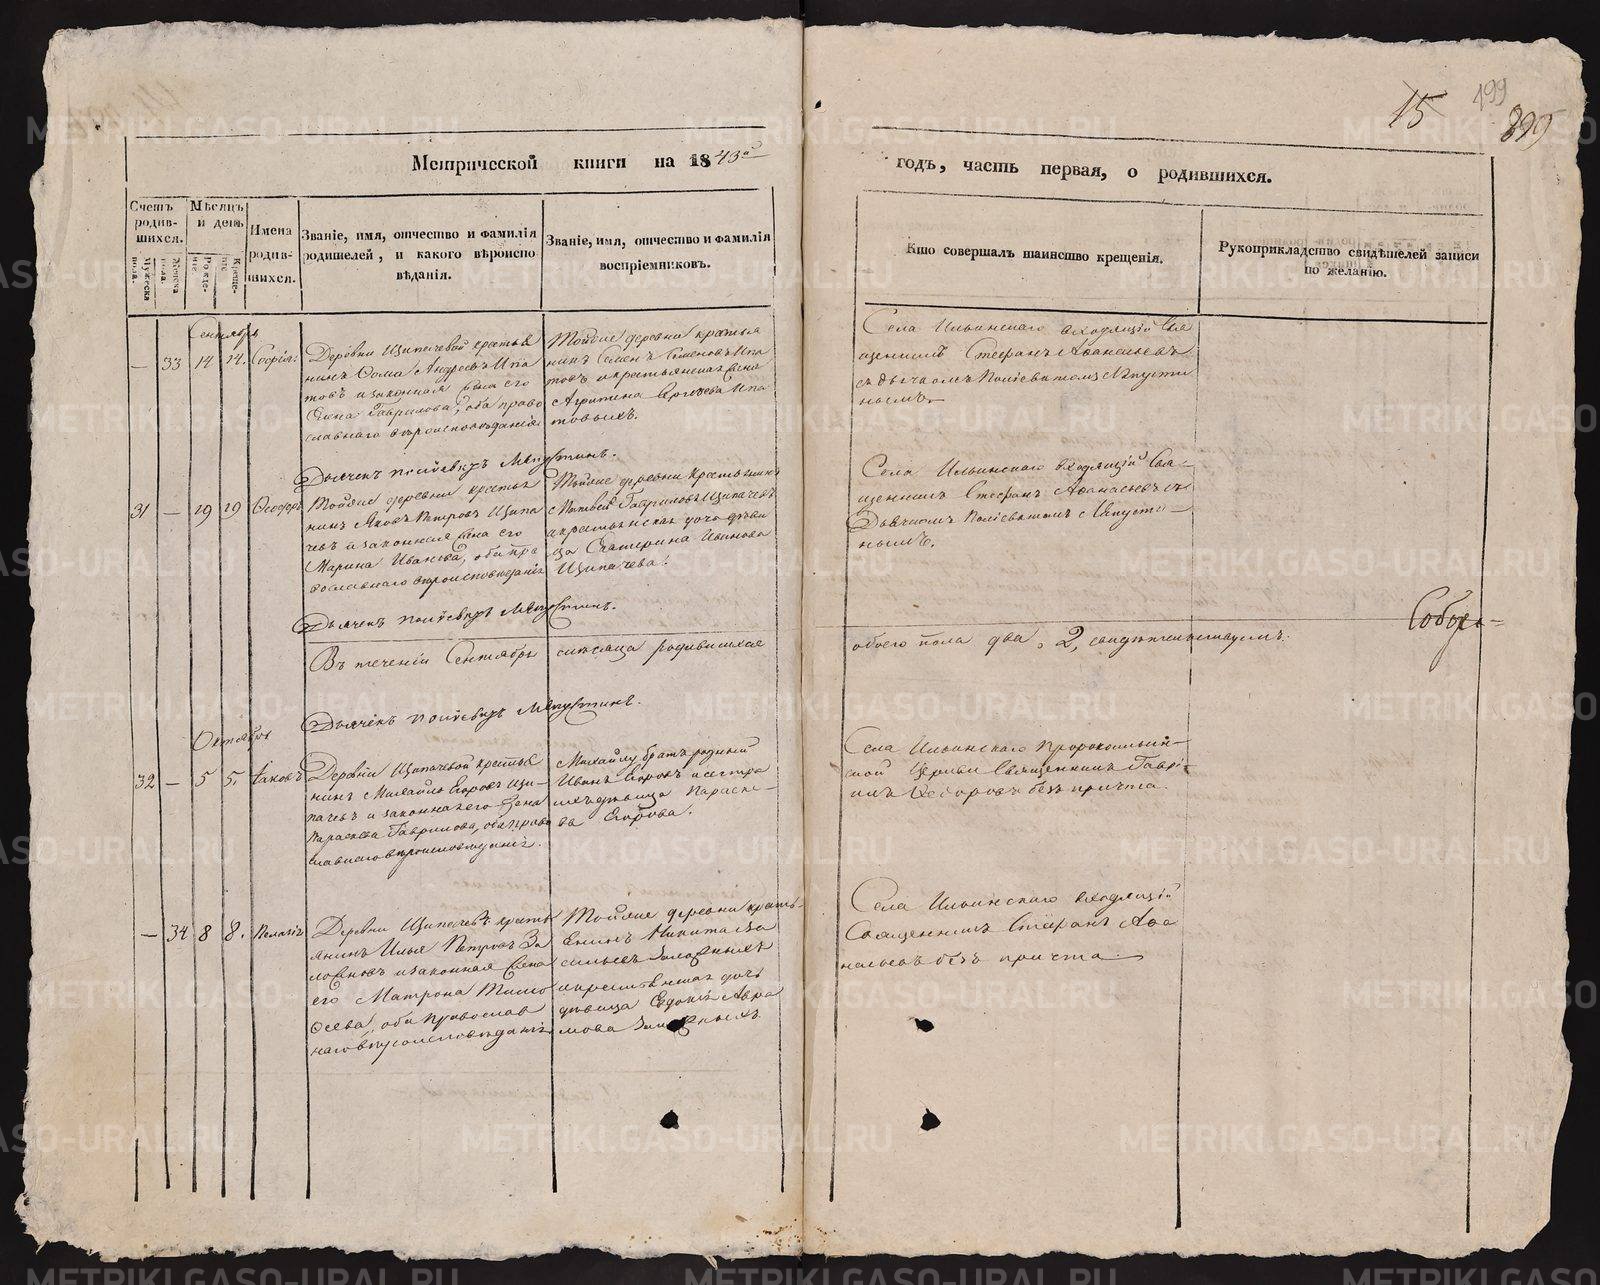 15
199
399
Метрической книги на 1843й
годъ, часть первая, о родившихся.
Счетъ родив- шихся.
Мужеска пола.
Женска пола.
Мѣсяцъ и день
Рожде- нія.
Креще- нія.
Имена родив- шихся.
Званіе, имя, отчество и фамилія родителей, и какого вѣроиспо вѣданія.
Званіе, имя, отчество и фамилія воспріемниковъ.
Кто совершалъ таинство крещенія.
Рукоприкладство свидѣтелей записи по желанію.
Сентябрь
— 33 14 14. Софія:
Деревни Щипачевой крестья
нинъ Ѳома Андреевъ Ипа
товъ и законная жена его
Елена Гаврилова, оба право
славнаго вѣроисповѣданія
Тойже деревни крестья
нинъ Семенъ Семеновъ Ипа
товъ и крестьянская жена
Агрипина Ипа
товыхъ.
Села Ильинскаго входящій Свя
щенникъ Стефанъ Аѳанасьевъ
съ дьячкомъ Полиевктомъ Мпусти
нымъ.
Дьячекъ Полиевктъ Мпустинъ.
31 — 19 19 Ѳеодоръ
Тойже деревни крестья
нинъ Яковъ Петровъ Щипа
чевъ и законная жена его
Марина Иванова, оба пра
вославнаго вѣроисповѣданія
Тойже деревни крестьянинъ
Матвей Гавриловъ Щипачевъ
и крестьянская дочь дѣви
ца Екатерина Иванова
Щипачева.
Села Ильинскаго входящій Свя-
щенникъ Стефанъ Аѳанасьевъ съ
Дьячкомъ Полиевктомъ Мпусти-
нымъ.
Дьячекъ Полиевктъ Мпустинъ.
Въ теченіи Сентября мѣсяца родившихся
обоего пола два, 2, свидѣтельствуемъ.
Соборо-
Дьячекъ Полиевктъ Мпустинъ.
Октябрь
32 — 5 5. Іаковъ
Деревни Щипачевой крестья
нинъ Михайло Егоровъ Щи-
пачевъ и законная его жена
Параскева Гаврилова, оба право
славнаго вѣроисповѣданія.
Михайлу братъ родный
Иванъ Егоровъ и сестра
ихъ дѣвица Параске-
ва Егорова.
Села Ильинскаго Пророкоильин-
ской Церкви Священникъ Гаврі-
илъ Ѳедоровъ безъ причта.
— 34 8 8. Пелагія
Деревни Щипачевой кресть
янинъ Илья Петровъ За
ложновъ и законная жена
его Матрона Тимо
ѳеева, оба православ
наго вѣроисповѣданія
Тойже деревни кресть-
янинъ Никита Ва
сильевъ Заложныхъ
и крестьянская дочь
дѣвица Евдокія Авра
мова Заложныхъ
Села Ильинскаго входящій
Священникъ Стефанъ Аѳа
насьевъ безъ причта.